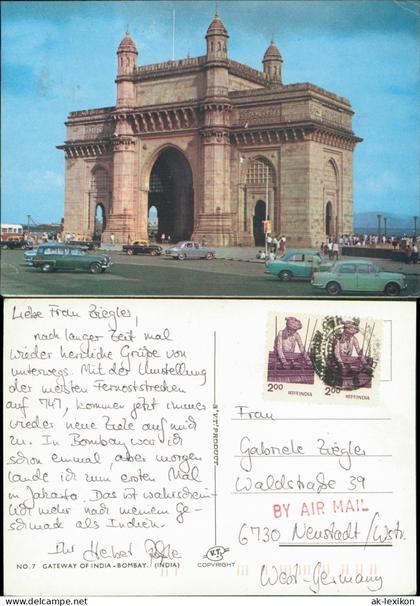 Liebe Frau Ziegler,
nach langer Zeit mal
wieder herzliche Grüße von
unterwegs. Mit der Umstellung
der meisten Fernoststrecken
auf 747, kommen jetzt immer
wieder neue Ziele auf mich
zu. In Bombay war ich
schon einmal, aber morgen
lande ich zum ersten Mal
in Jakarta. Das ist wahrschein-
lich mehr nach meinem Ge-
schmack als Indien.
Ihr Herbert
NO. 7 GATEWAY OF INDIA - BOMBAY. (INDIA)
A "V.T." PRODUCT
V.T.
COPYRIGHT
2.00 INDIA
2.00 INDIA
Frau
Gabriele Ziegler
Waldstraße 39
BY AIR MAIL
6730 Neustadt/Wstr.
West-Germany
delcampe.net
ak-lexikon